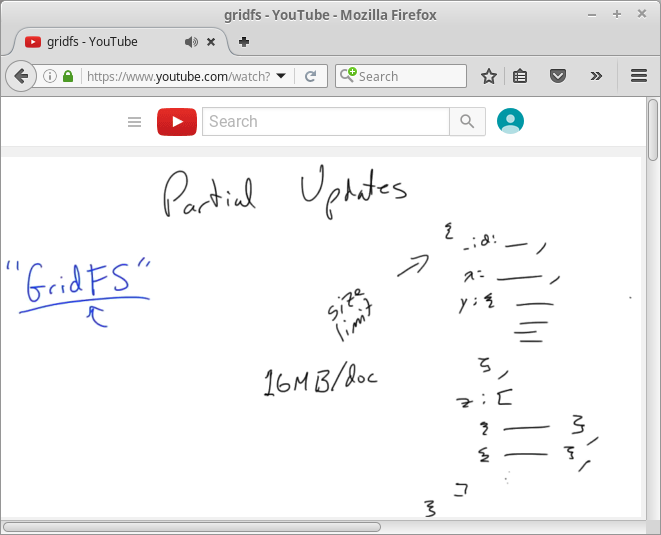 gridfs - YouTube - Mozilla Firefox
gridfs - YouTube
https://www.youtube.com/watch?
Search
Search
Partial Updates
"GridFS"
size
limit
16MB/doc
{
_id: __,
x: __,
y: { __
},
z: [
{ __ },
{ __ },
]
}